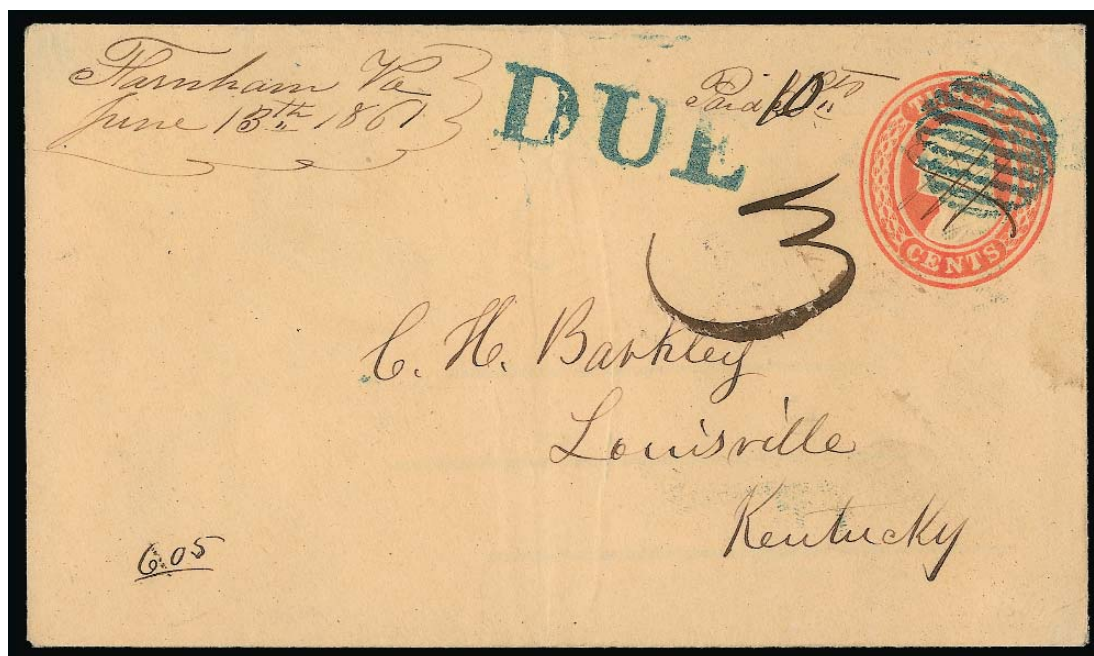 Farnham Va
June 13th 1861
DUE
Paid 10 Cts
THREE
CENTS
3
C. H. Barkley
Louisville
Kentucky
6.05